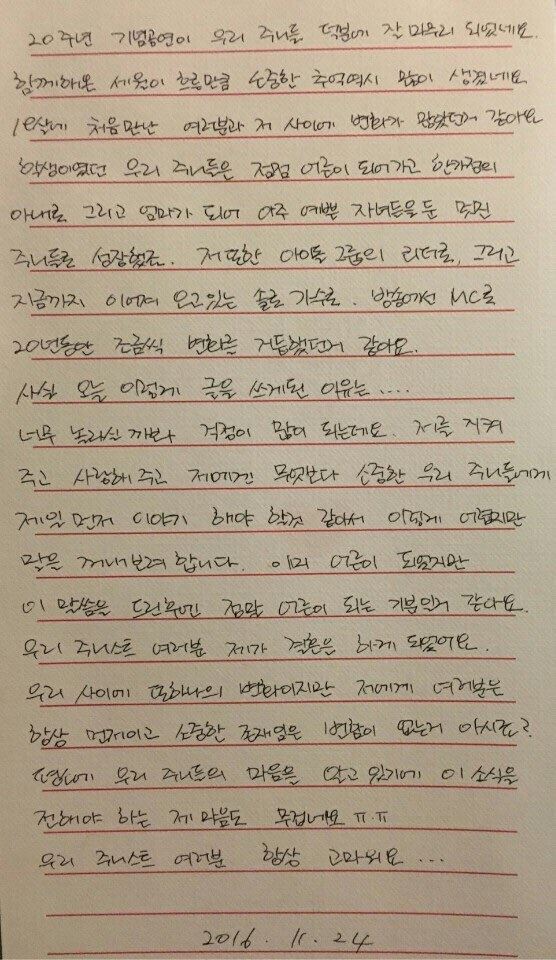 20주년 기념공연이 우리 주니들 덕분에 잘 마무리 되었네요.
함께해온 세월이 흐른만큼 소중한 추억역시 많이 생겼네요
18살에 처음만난 여러분과 저 사이에 변화가 많았던거 같아요
학생이였던 우리 주니들은 점점 어른이 되어가고 한가정의
아내로 그리고 엄마가 되어 아주 예쁜 자녀들을 둔 멋진
주니들로 성장했죠. 저또한 아이돌그룹의 리더로, 그리고
지금까지 이어져 오고있는 솔로가수로. 방송에선 MC로
20년동안 조금씩 변화를 거듭했던거 같아요.
사실 오늘 이렇게 글을 쓰게된 이유는....
너무 놀라실까봐 걱정이 많이 되는데요. 저를 지켜
주고 사랑해주고 저에겐 무엇보다 소중한 우리 주니들에게
제일 먼저 이야기 해야 할것 같아서 이렇게 어렵지만
말을 꺼내보려합니다. 이미 어른이 되었지만
이 말씀을 드린후에 정말 어른이 되는 기분인거 같아요.
우리 주니스트 여러분 제가 결혼을 하게 되었어요.
우리 사이에 또하나의 변화이지만 저에게 여러분은
항상 먼저이고 소중한 존재임은 변함이 없는거 아시죠?
우리 주니들의 마음을 알고 있기에 이 소식을
전해야 하는 제 마음도 무겁네요 ㅠ.ㅠ
우리 주니스트 여러분 항상 고마워요 ...
2016. 11. 24